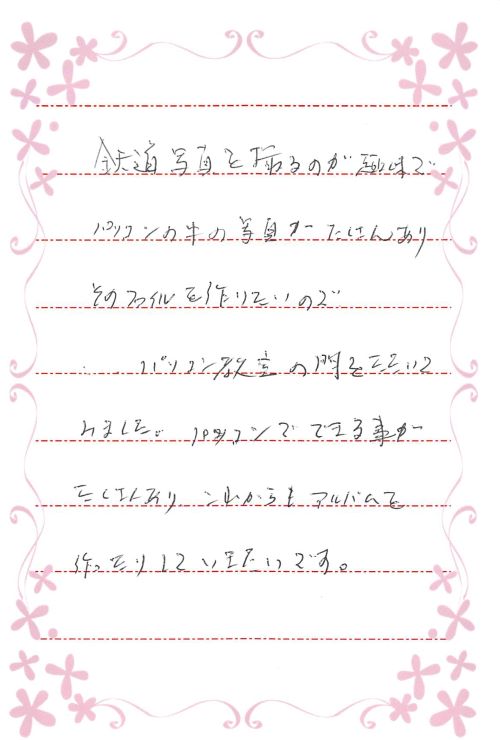 鉄道写真を撮るのが趣味で
パソコンの中の写真がたくさんあり
そのファイルを作りたいので
パソコン教室の門をたたいて
みました。パソコンでできる事が
たくさんあり これからもアルバムを
作ったりしていきたいです。